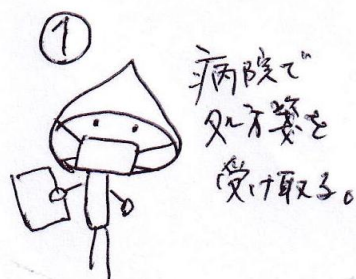 ①
病院で
処方箋を
受け取る。